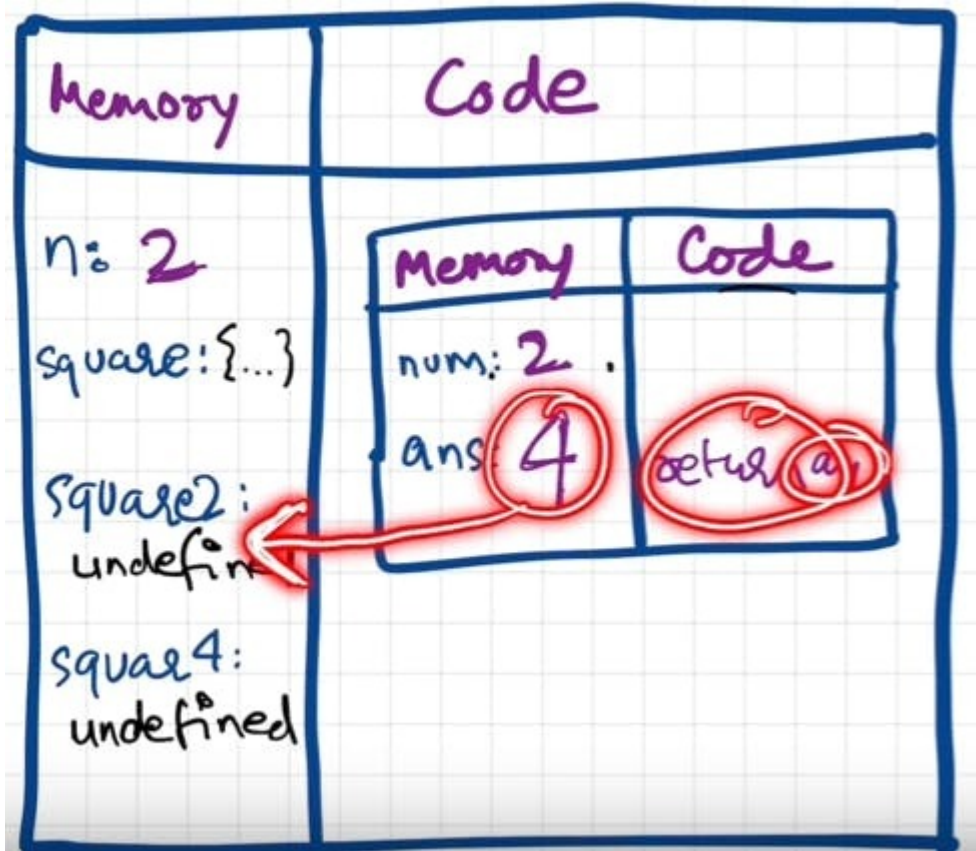 Memory
Code
n: 2
square: {...}
square2:
undefin
squar4:
undefined
Memory
Code
num: 2 .
ans: 4
return